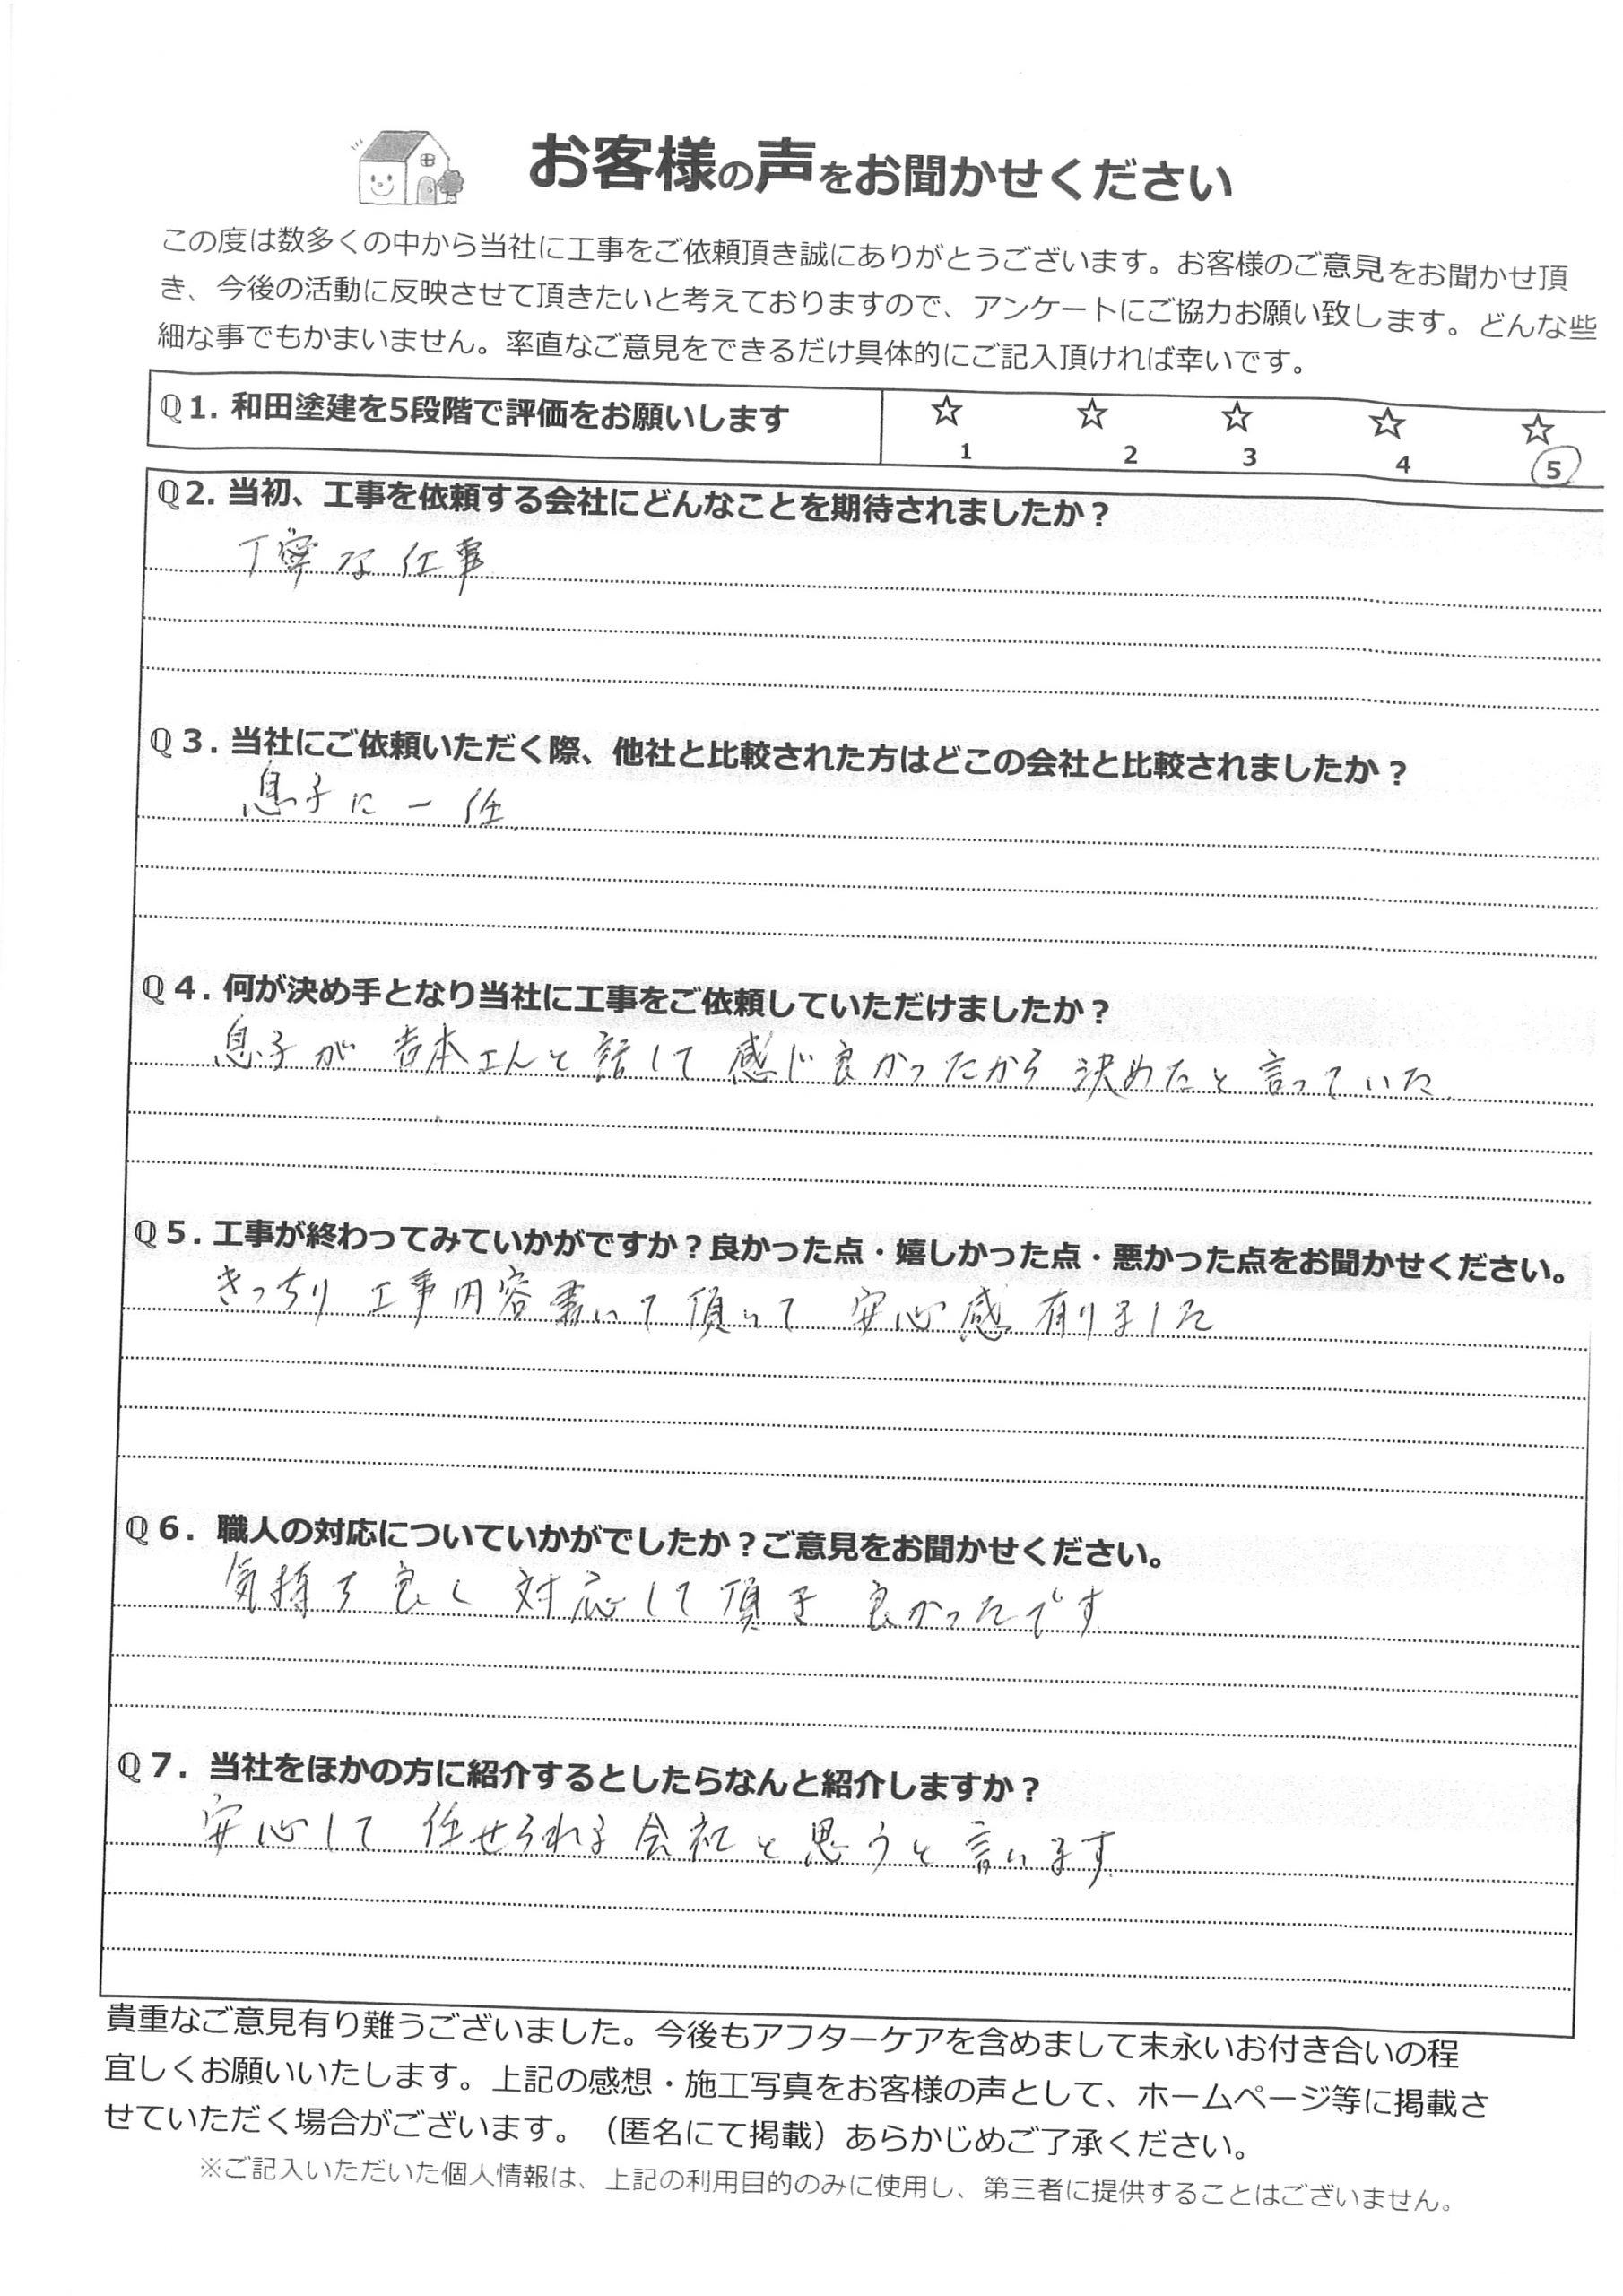 お客様の声をお聞かせください
この度は数多くの中から当社に工事をご依頼頂き誠にありがとうございます。お客様のご意見をお聞かせ頂
き、今後の活動に反映させて頂きたいと考えておりますので、アンケートにご協力お願い致します。どんな些
細な事でもかまいません。率直なご意見をできるだけ具体的にご記入頂ければ幸いです。
Q1. 和田塗建を5段階で評価をお願いします ☆ ☆ ☆ ☆ ☆
1 2 3 4 5
Q2. 当初、工事を依頼する会社にどんなことを期待されましたか？
丁寧な仕事
Q3. 当社にご依頼いただく際、他社と比較された方はどこの会社と比較されましたか？
息子に一任
Q4. 何が決め手となり当社に工事をご依頼していただけましたか？
息子が 吉本さんと話して 感じ良かったから 決めたと言っていた。
Q5. 工事が終わってみていかがですか？良かった点・嬉しかった点・悪かった点をお聞かせください。
きっちり 工事内容書いて頂いて 安心感有りました
Q6. 職人の対応についていかがでしたか？ご意見をお聞かせください。
気持ち良く 対応して頂き 良かったです
Q7. 当社をほかの方に紹介するとしたらなんと紹介しますか？
安心して 任せられる会社と思うと言います
貴重なご意見有り難うございました。今後もアフターケアを含めまして末永いお付き合いの程
宜しくお願いいたします。上記の感想・施工写真をお客様の声として、ホームページ等に掲載さ
せていただく場合がございます。（匿名にて掲載）あらかじめご了承ください。
※ご記入いただいた個人情報は、上記の利用目的のみに使用し、第三者に提供することはございません。